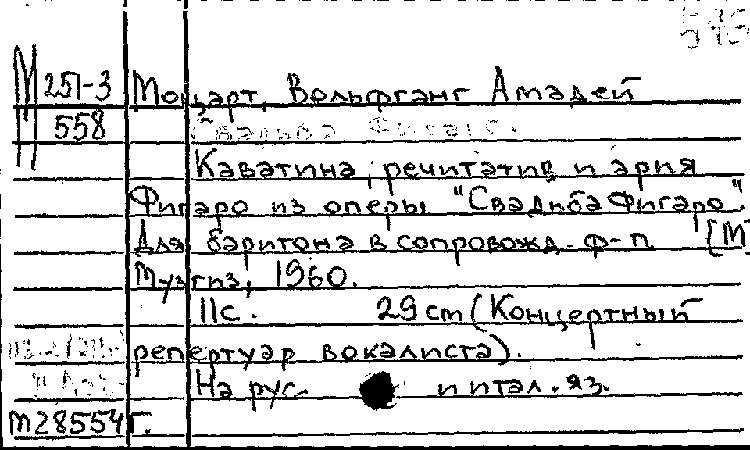 М 251-3 Моцарт, Вольфганг Амадей
558 Свадьба Фигаро.
Каватина, речитатив и ария
Фигаро из оперы "Свадьба Фигаро".
Для баритона в сопровожд. ф-п. [М]
Музгиз, 1960.
11с. 29 cm (Концертный
репертуар вокалиста).
На рус. и итал. яз.
м28554г.